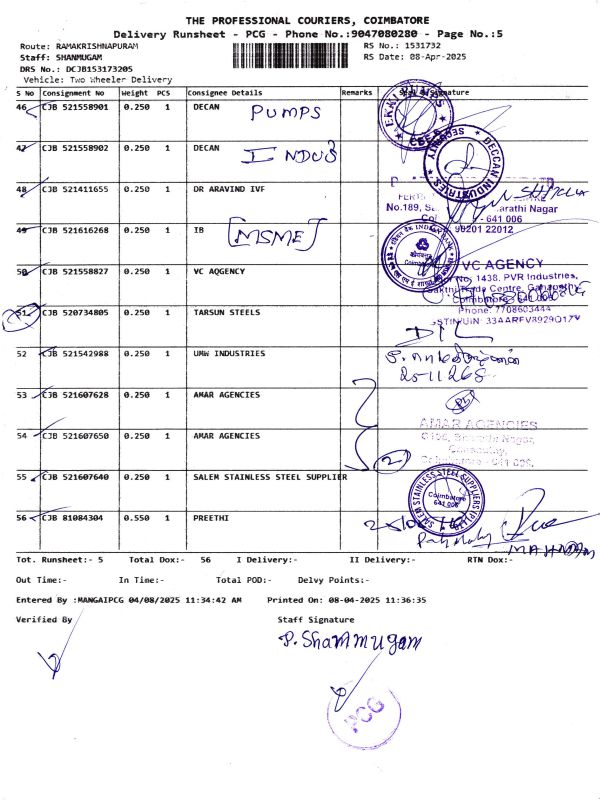 THE PROFESSIONAL COURIERS, COIMBATORE
Delivery Runsheet - PCG - Phone No.:9047080280 - Page No.:5
Route: RAMAKRISHNAPURAM RS No.: 1531732
Staff: SHANMUGAM RS Date: 08-Apr-2025
DRS No.: DCJB153173205
Vehicle: Two Wheeler Delivery
S No Consignment No Weight PCS Consignee Details Remarks Signature
46 CJB 521558901 0.250 1 DECAN PUMPS
47 CJB 521558902 0.250 1 DECAN INDUS
DECCAN INDUSTRIES
48 CJB 521411655 0.250 1 DR ARAVIND IVF
No.189, Bharathi Nagar
- 641 006
90201 22012
49 CJB 521616268 0.250 1 IB [MSME]
INDIAN BANK
50 CJB 521558827 0.250 1 VC AQGENCY
VC AGENCY
No. 1438, PVR Industries,
Sakthi Trade Centre, Ganapathy
Coimbatore
Phone: 7708603444
51 CJB 520734805 0.250 1 TARSUN STEELS
52 CJB 521542988 0.250 1 UMW INDUSTRIES
53 CJB 521607628 0.250 1 AMAR AGENCIES
54 CJB 521607650 0.250 1 AMAR AGENCIES
2
AMAR AGENCIES
Coimbatore - 641 006.
55 CJB 521607640 0.250 1 SALEM STAINLESS STEEL SUPPLIER
SALEM STAINLESS STEEL SUPPLIERS
Coimbatore
641 006
56 CJB 81084304 0.550 1 PREETHI
Tot. Runsheet:- 5 Total Dox:- 56 I Delivery:- II Delivery:- RTN Dox:-
Out Time:- In Time:- Total POD:- Delvy Points:-
Entered By :MANGAIPCG 04/08/2025 11:34:42 AM Printed On: 08-04-2025 11:36:35
Verified By Staff Signature
P. Shanmugam
PCG